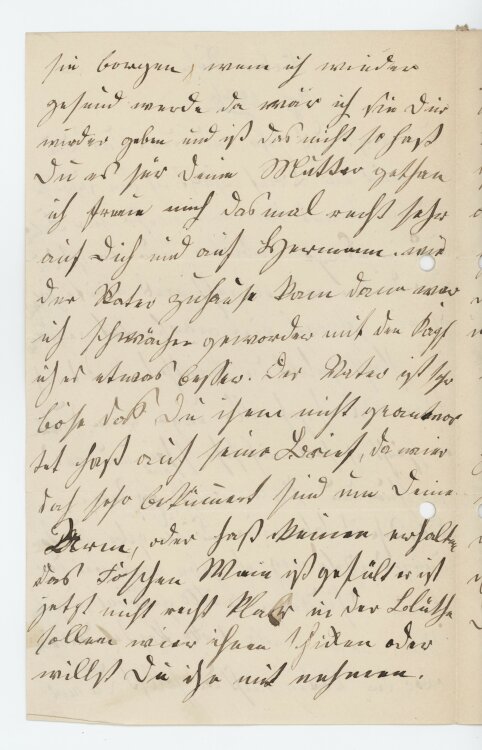 sie borgen, wenn ich wieder
gesund werde da wär ich sie Dir
wieder geben und ist das nicht so hast
Du es für Deine Mutter gethan
ich freue mich das mal recht sehr
auf Dich und auf Hermann. wie
der Vater zuhause kam dann war
ich schwächer geworden mit den
ich es etwas besser. Der Vater ist sehr
böse das Du ihem nicht geantwor
tet hast auf seine Brief, da wier
doch soso bekümert sind um Deine
Arm, oder hast keinen erhalten
das Töschen Wein ist gefült er ist
jetzt nicht recht klar in der Blüthe
sollen wier ihnen schiken oder
willst Du ihn mit nehmen.